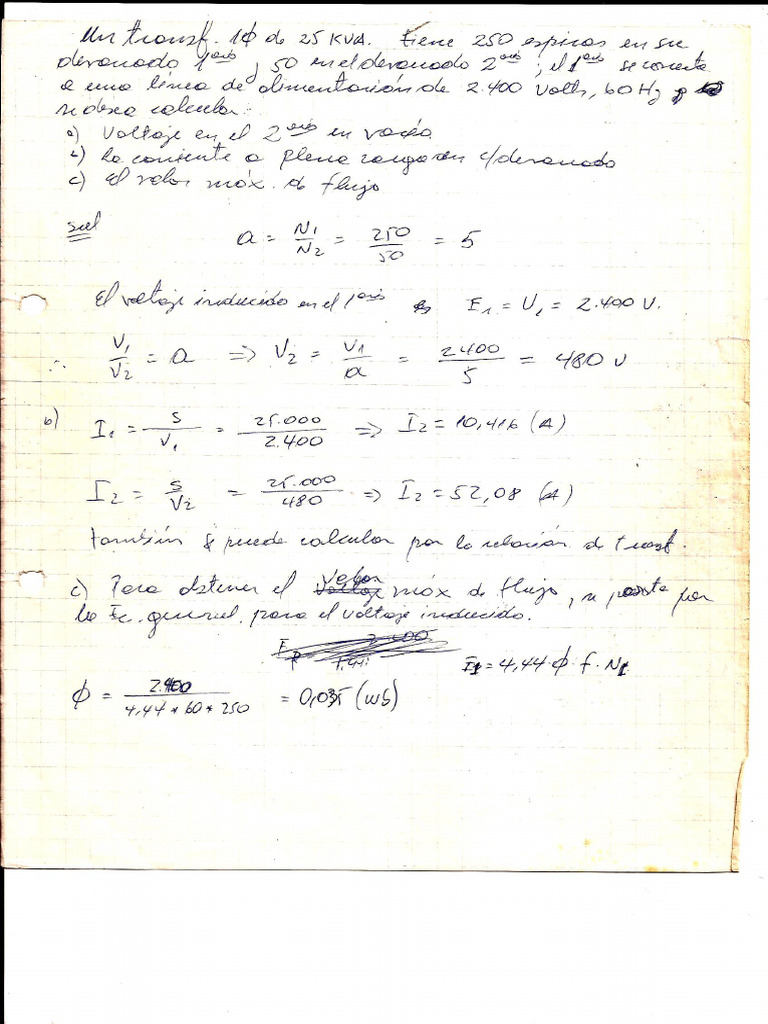 Un transf. 1φ de 25 KVA. Tiene 250 espiras en su
devanado 1ario, 50 en el devanado 2ario; el 1ario se conecta
a una línea de alimentación de 2.400 Volts, 60 Hz y
se desea calcular:
a) Voltaje en el 2ario en vacío.
b) La corriente a plena carga en c/devanado
c) El valor máx. de flujo
sol
a = N1/N2 = 250/50 = 5
El voltaje inducido en el 1ario es E1 = U1 = 2.400 V.
∴ V1/V2 = a => V2 = V1/a = 2400/5 = 480 V
b) I1 = S/V1 = 25.000/2.400 => I2 = 10,416 (A)
I2 = S/V2 = 25.000/480 => I2 = 52,08 (A)
también se puede calcular por la relación de transf.
c) Para obtener el Valor máx de flujo, se parte por
la Ec. general para el voltaje inducido.
E1 = 4,44·φ·f·N1
φ = 2.400/4,44*60*250 = 0,035 (wb)